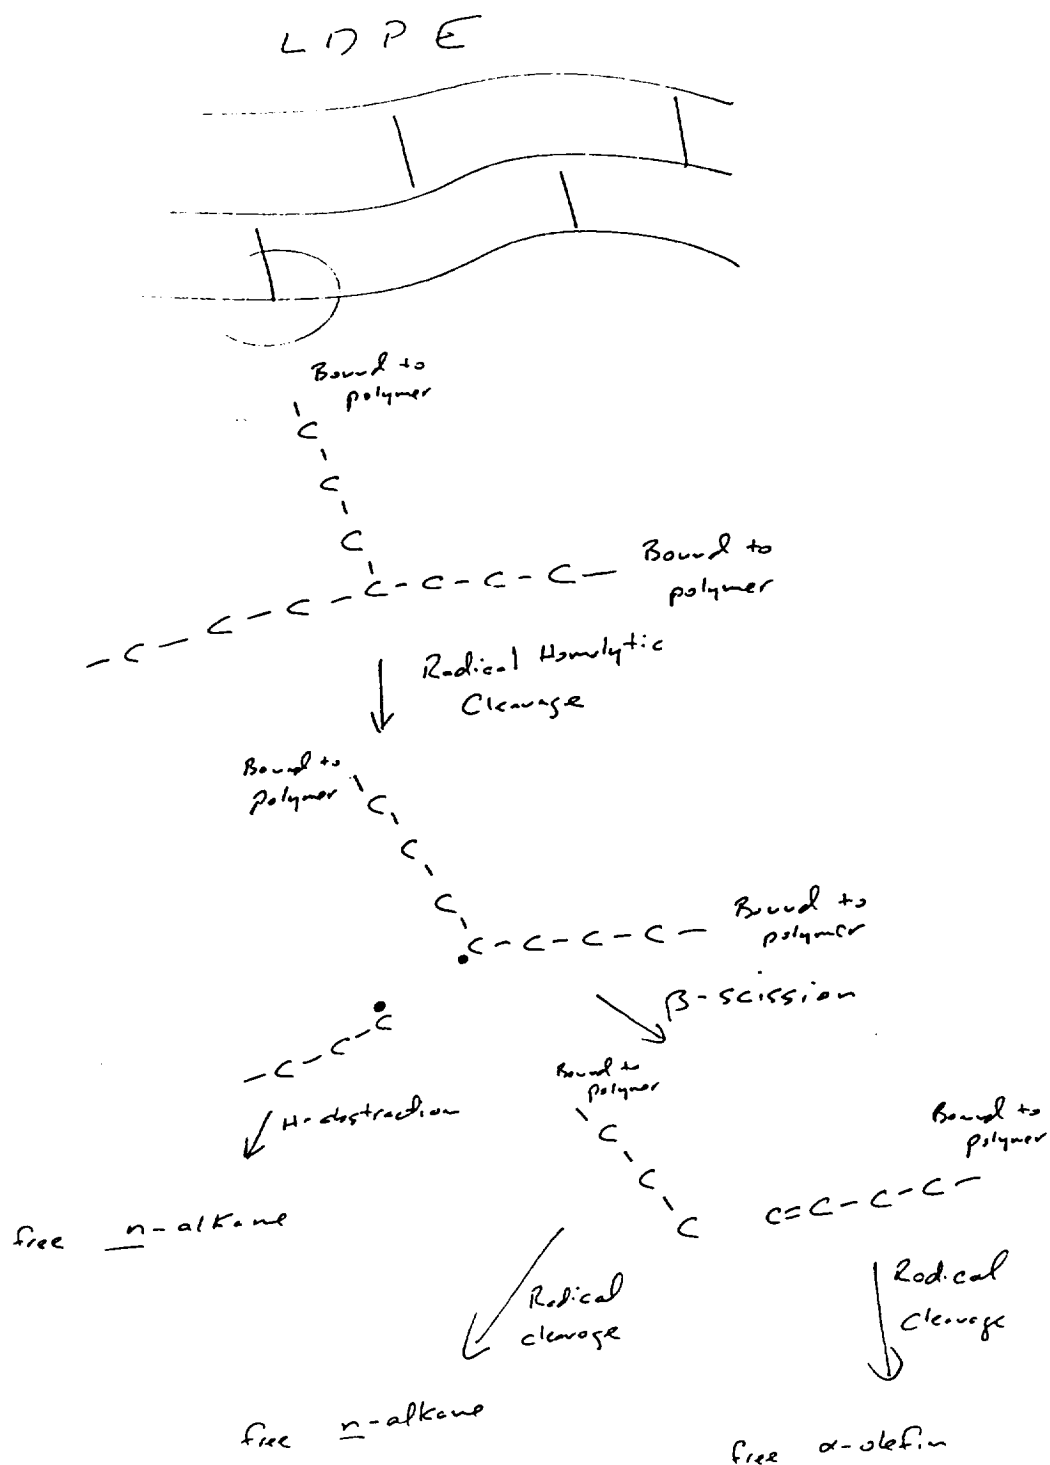 LDPE
Bound to
polymer
C
C
C
- C - C - C - C - C - C - C -
Bound to
polymer
Radical Homolytic
Cleavage
Bound to
polymer
C
C
C
C - C - C - C -
Bound to
polymer
- C - C - C
β-scission
H-abstraction
Bound to
polymer
C
C
C
C=C-C-C-
Bound to
polymer
free n-alkane
Radical
cleavage
Radical
Cleavage
free n-alkane
free α-olefin